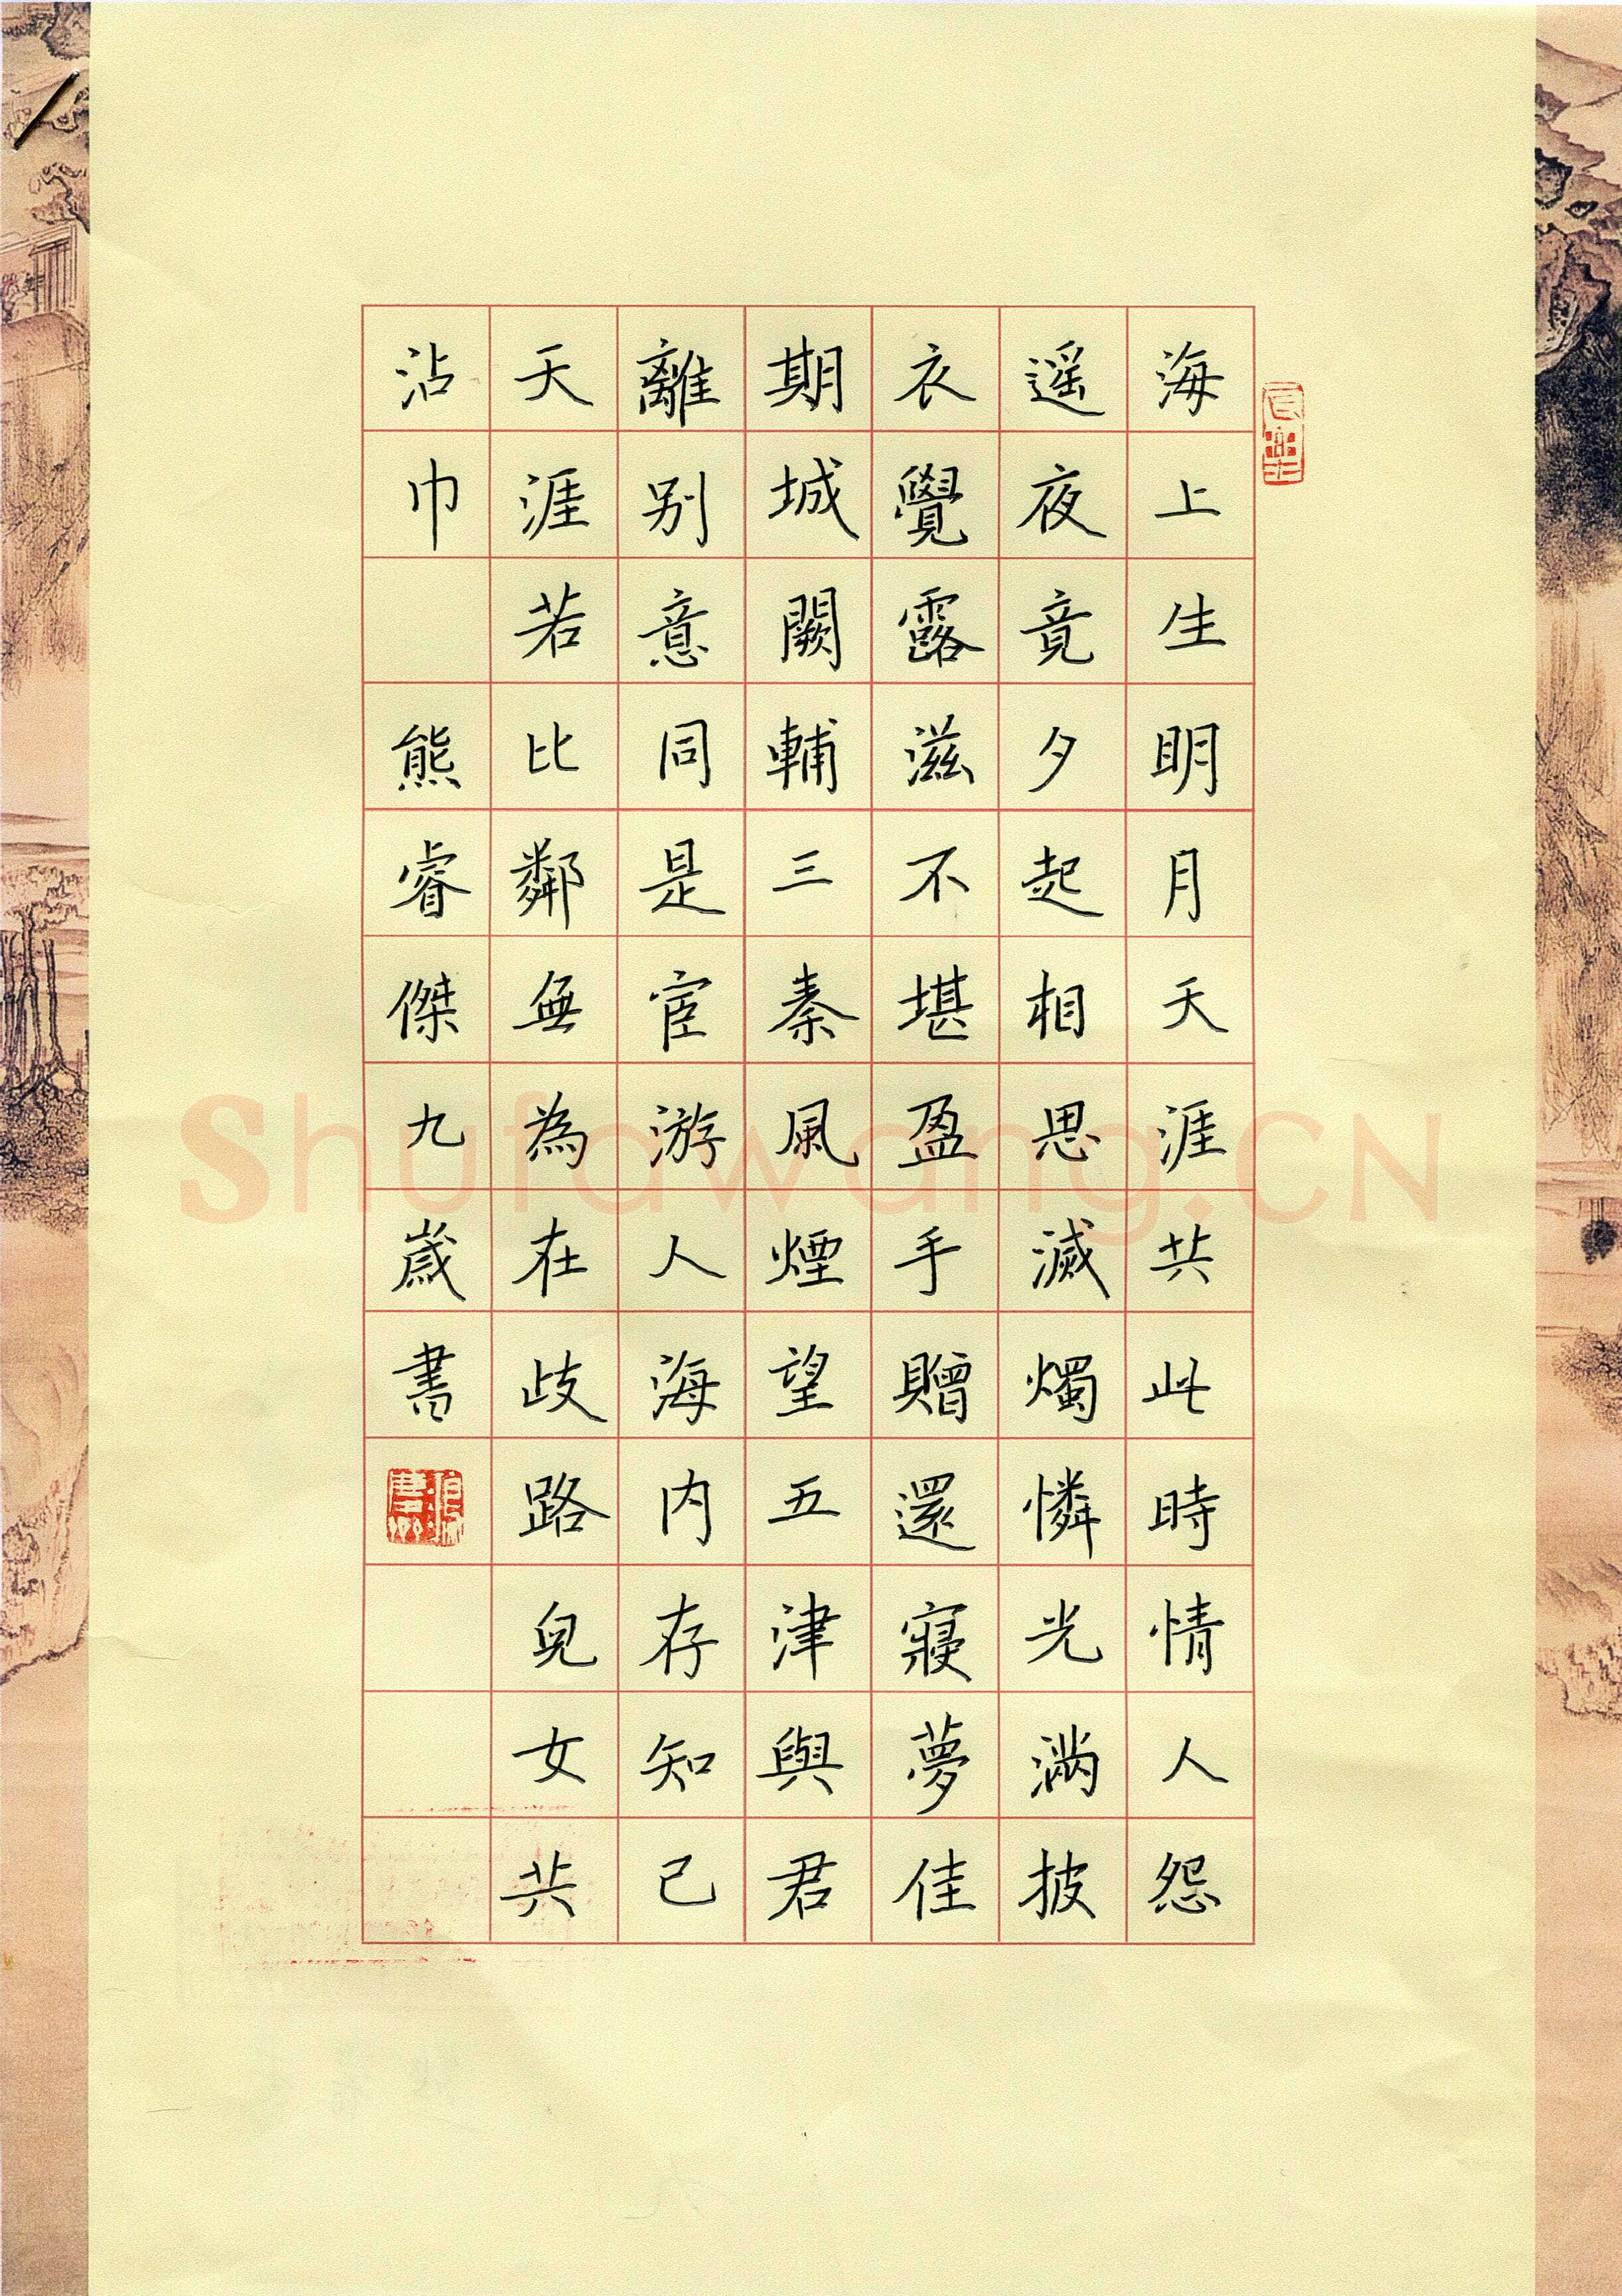 海上生明月天涯共此時情人怨
遥夜竟夕起相思滅燭憐光滿披
衣覺露滋不堪盈手贈還寢夢佳
期城闕輔三秦風煙望五津與君
離别意同是宦游人海内存知己
天涯若比鄰無為在歧路兒女共
沾巾 熊睿傑九歲書
Shufawang.CN